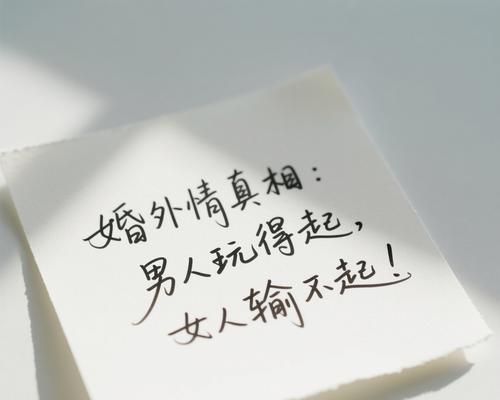 婚外情真相：
男人玩得起，
女人输不起！